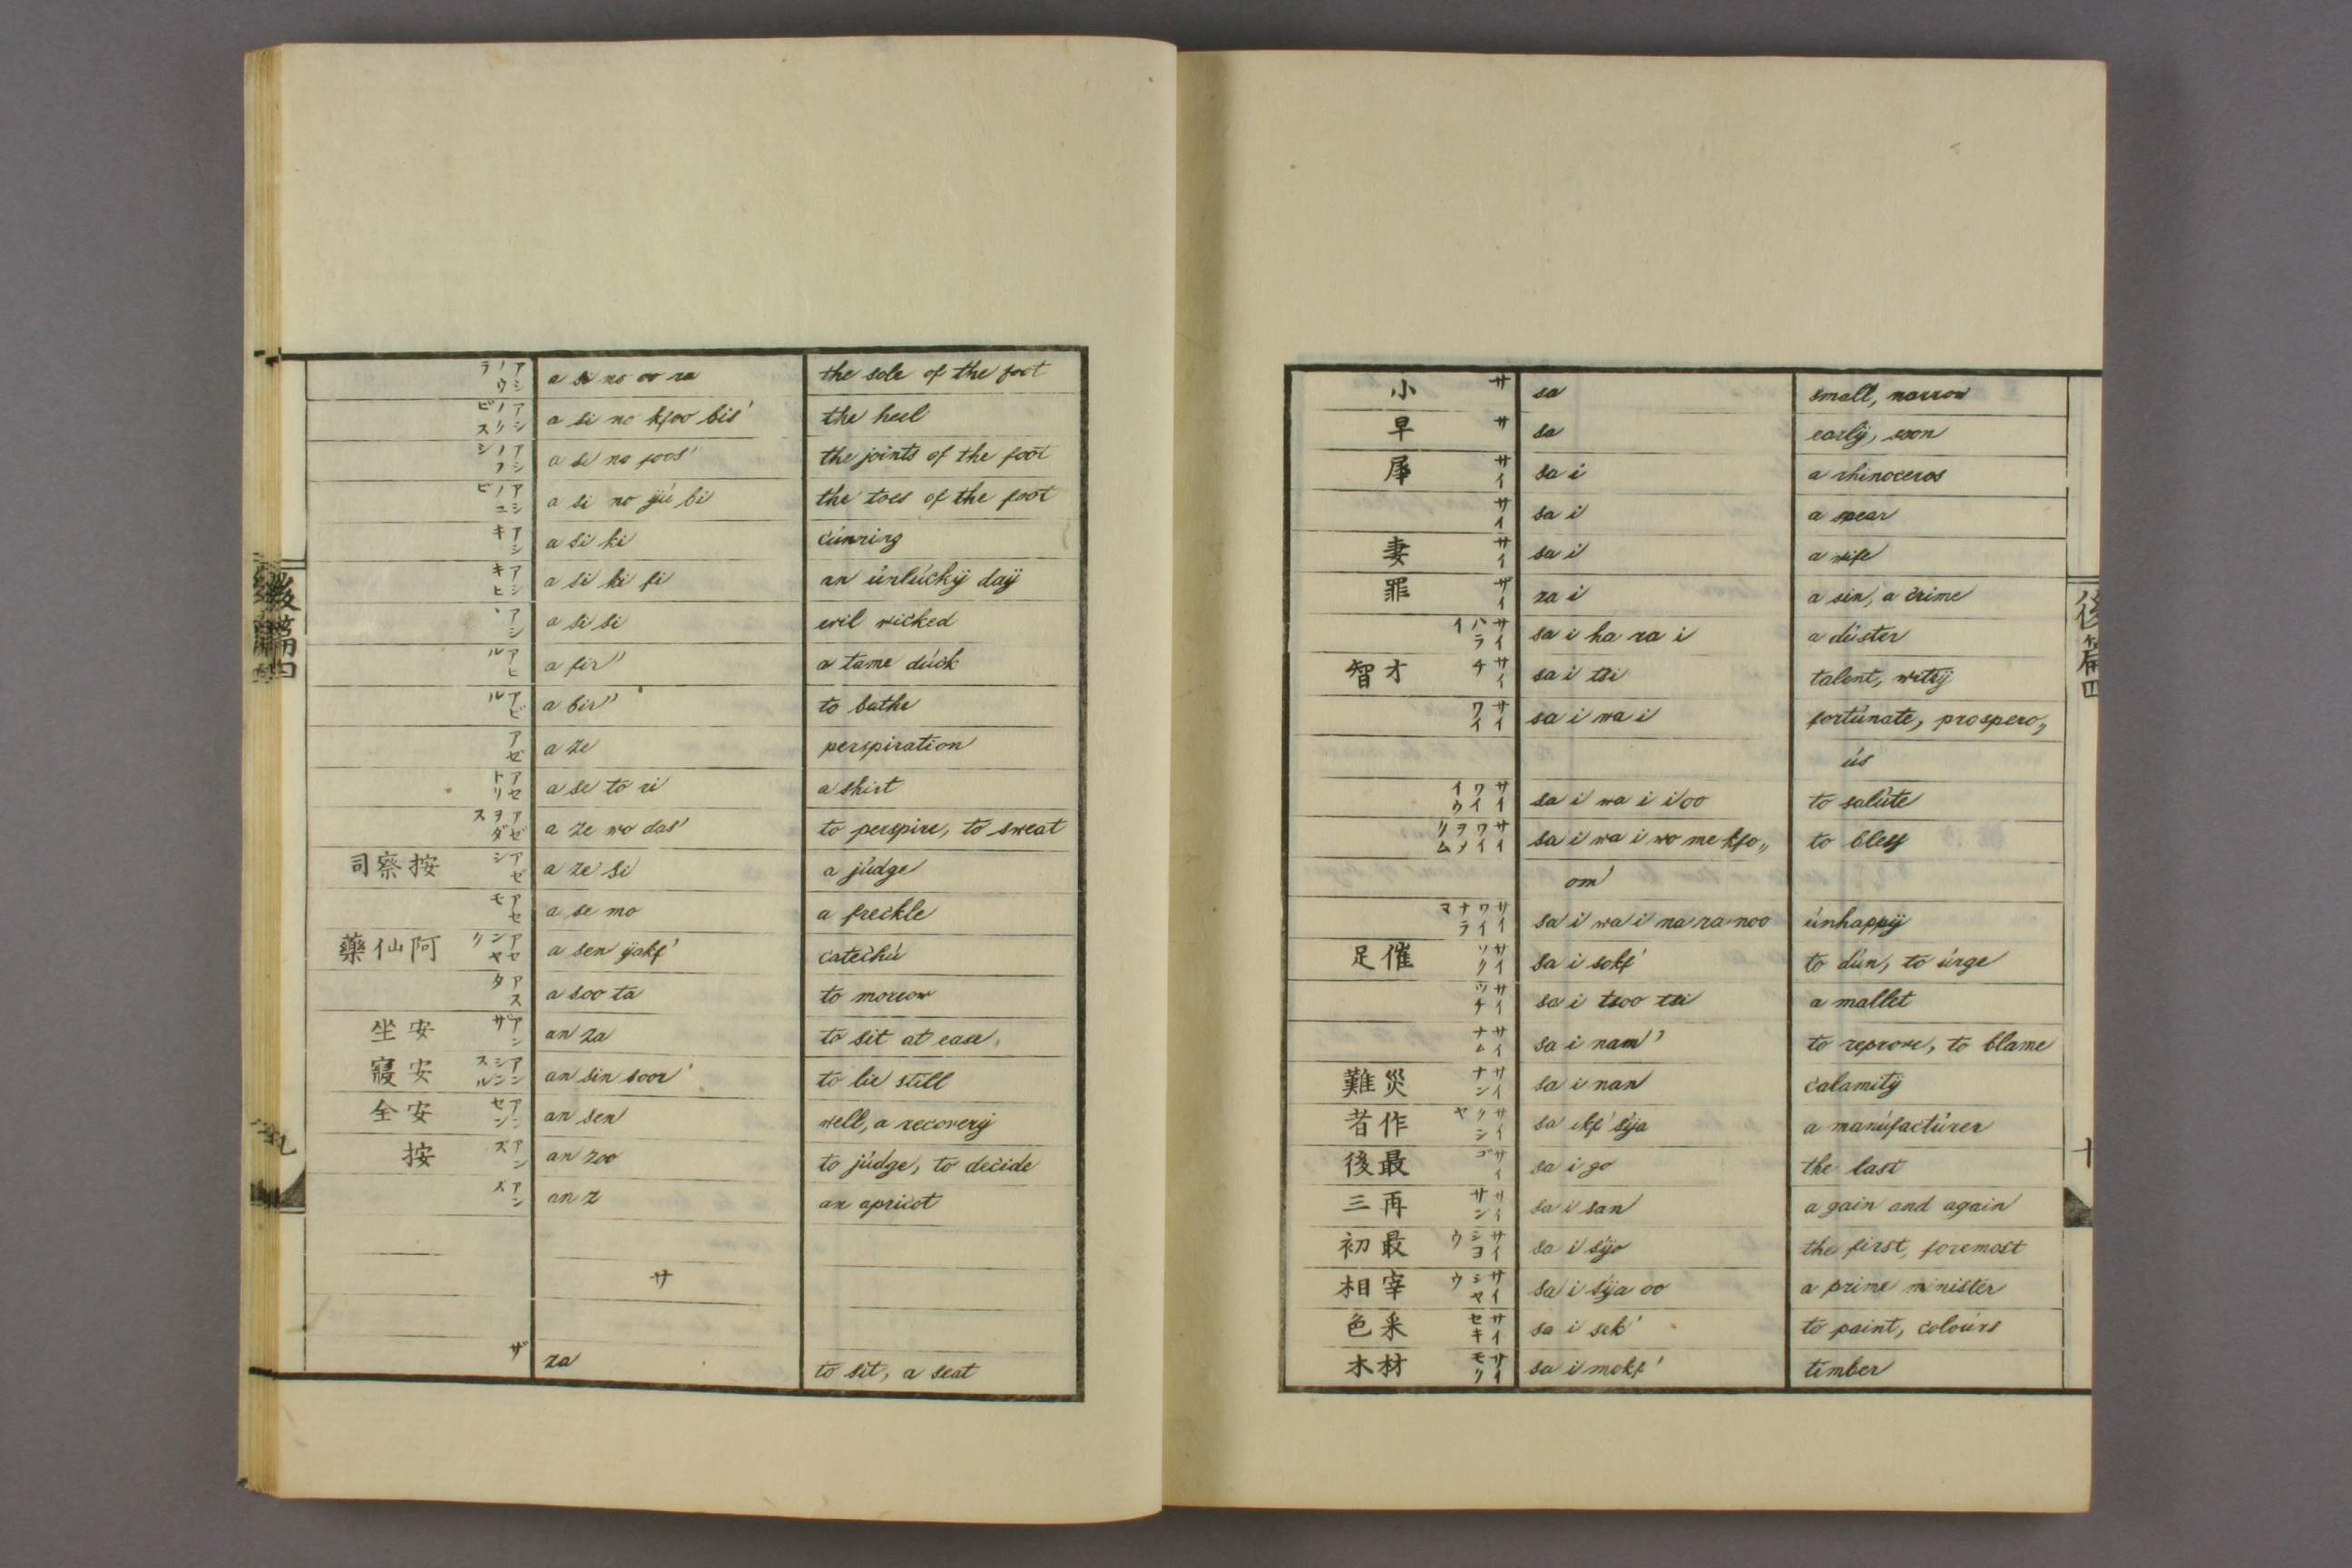 アシノウラ a si no oo ra the sole of the foot
アシノクビス a si no kfoo bis' the heel
アシノフシ a si no foos' the joints of the foot
アシノユビ a si no ÿu bi the toes of the foot
アシキ a si ki cunning
アシキヒ a si ki fi an unluckÿ daÿ
アシヽ a si si evil wicked
アヒル a fir" a tame duck
アビル a bir" to bathe
アゼ a ze perspiration
アセトリ a se to ri a shirt
アゼヲダス a ze wo das' to perspire, to sweat
司察按 アゼシ a ze si a judge
アセモ a se mo a freckle
藥仙阿 アセンヤク a sen ÿakf' catechu
アスタ a soo ta to morrow
坐安 アンザ an za to sit at ease
寢安 アンシンスル an sin soor' to lie still
全安 アンセン an sen well, a recoverÿ
按 アンズ an zoo to judge, to decide
アンズ an z an apricot
サ
ザ za to sit, a seat
後篇四
九
小 サ sa small, narrow
早 サ sa earlÿ, soon
犀 サイ sa i a rhinoceros
サイ sa i a spear
妻 サイ sa i a wife
罪 ザイ za i a sin, a crime
サイハライ sa i ha ra i a duster
智才 サイチ sa i tsi talent,
サイワイ sa i wa i fortunate, prospero„
us
サイワイイウ sa i wa i i oo to salute
サイワイヲメクム sa i wa i wo me kfo„ to bless
om'
サイワイナラマ sa i wa i na ra noo unhappÿ
足催 サイソク sa i sokf' to dun, to urge
サイツチ sa i tsoo tsi a mallet
サイナム sa i nam' to reprove, to blame
難災 サイナン sa i nan calamitÿ
者作 サイクシヤ sa ikf' sÿa a manufacturer
後最 サイゴ sa i go the last
三再 サイサン sa i san a gain and again
初最 サイシヨウ sa i sÿo the first, foremost
相宰 サイシヤウ sa i sÿa oo a prime minister
色采 サイセキ sa i sek' to paint, colours
木材 サイモク sa i mokf' timber
後篇四
十